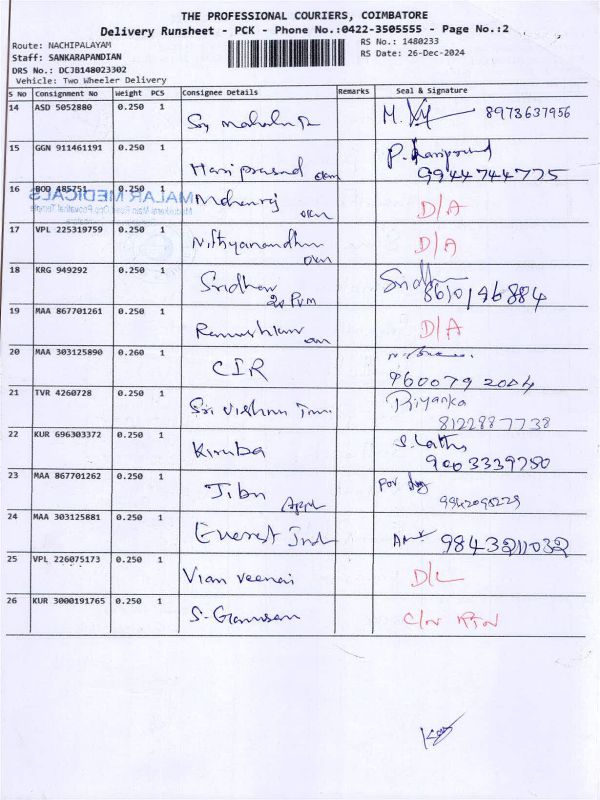 THE PROFESSIONAL COURIERS, COIMBATORE
Delivery Runsheet - PCK - Phone No.:0422-3505555 - Page No.:2
Route: NACHIPALAYAM
RS No.: 1480233
Staff: SANKARAPANDIAN
RS Date: 26-Dec-2024
DRS No.: DCJB148023302
Vehicle: Two Wheeler Delivery
S No Consignment No Weight PCS Consignee Details Remarks Seal & Signature
14 ASD 5052880 0.250 1 8973637956
15 GGN 911461191 0.250 1 Hari prasad okm P. Hariprasad
9944744775
16 BOO 485751 0.250 1 Mohanraj okm D/A
MALAR MEDICALS
17 VPL 225319759 0.250 1 Nithyanandhan okm D/A
18 KRG 949292 0.250 1 Sridhar Sridhar
8610196884
19 MAA 867701261 0.250 1 D/A
20 MAA 303125890 0.260 1 CIR
9600792004
21 TVR 4260728 0.250 1 Sri Vishnu Priyanka
8122887738
22 KUR 696303372 0.250 1 Kiruba S. Latha
9003339750
23 MAA 867701262 0.250 1 Jibu
24 MAA 303125881 0.250 1 Everest Ind 9843211032
25 VPL 226075173 0.250 1 D/L
26 KUR 3000191765 0.250 1 C/N RTN